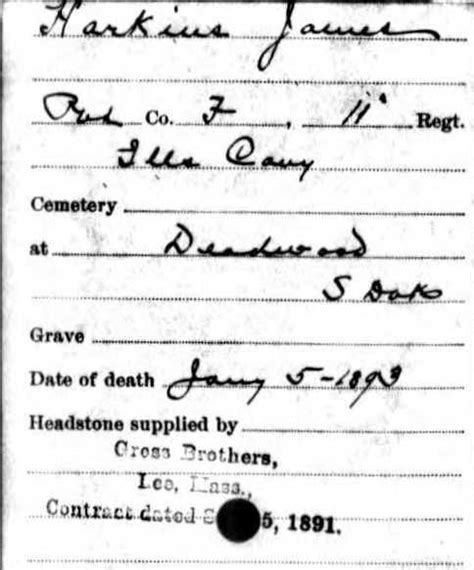 Harkins James
Pvt Co. F, 11" Regt.
Ills Cavy
Cemetery
at Deadwood
S Dak
Grave
Date of death Jany 5-1893
Headstone supplied by
Gross Brothers,
Lee, Mass.,
Contract dated 5, 1891.